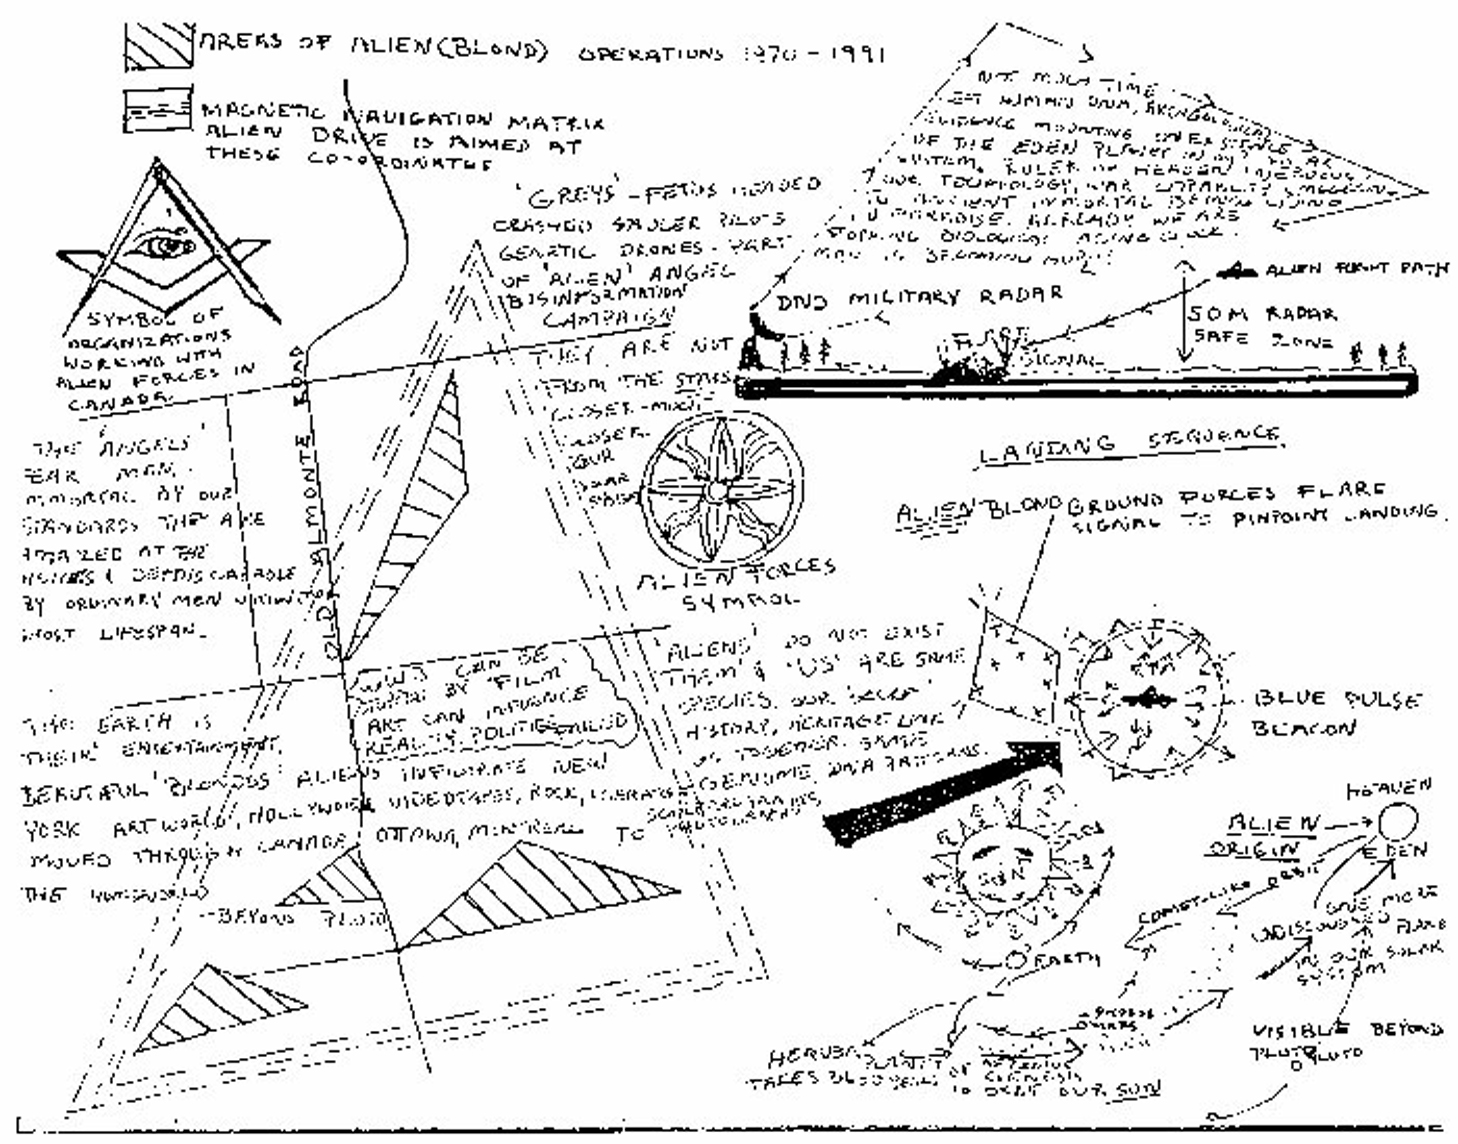 AREAS OF ALIEN (BLOND) OPERATIONS 1970 - 1991
MAGNETIC NAVIGATION MATRIX
ALIEN DRIVE IS AIMED AT
THESE CO-ORDINATES
SYMBOL OF
ORGANIZATIONS
WORKING WITH
ALIEN FORCES IN
CANADA.
'GREYS' - FETUS HEADED
CRASHED SAUCER PILOTS
GENETIC DRONES - PART
OF 'ALIEN' ANGEL
DISINFORMATION
CAMPAIGN
THEY ARE NOT
FROM THE STARS
CLOSER - MUCH
CLOSER.
OUR
NOT MUCH TIME
LEFT HUMAN DNA, ARCHEOLOGICAL
EVIDENCE MOUNTING ON EXISTENCE
OF THE EDEN PLANET IN OUR SOLAR
SYSTEM. RULER OF HEAVEN NERVOUS
OUR TECHNOLOGY, WAR CAPABILITY
ANCIENT IMMORTAL BEINGS LIVING
IN PARADISE. ALREADY WE ARE
STOPPING BIOLOGICAL AGING CLOCK.
MAN IS BECOMING
DND MILITARY RADAR
ALIEN FLIGHT PATH
50M RADAR
SAFE ZONE
FLARE
SIGNAL
LANDING SEQUENCE
ALIEN BLOND GROUND FORCES FLARE
SIGNAL TO PINPOINT LANDING.
OLD ALMONTE ROAD
THE 'ANGELS'
FEAR MAN.
IMMORTAL BY OUR
STANDARDS THEY ARE
AMAZED AT THE
BY ORDINARY MEN WITHIN
MOST LIFESPAN.
ALIEN FORCES
SYMBOL
WW3 CAN BE
BY 'FILM'
ART CAN INFLUENCE
REALITY, POLITICS
'ALIENS' DO NOT EXIST
'THEM' & 'US' ARE SAME
SPECIES. OUR
HISTORY, HERITAGE LINK
US TOGETHER. SAME
GENOME, DNA PATTERNS.
PHOTOGRAPHS
BLUE PULSE
BEACON
THE EARTH IS
THEIR ENTERTAINMENT.
BEAUTIFUL 'BLONDS' ALIENS INFILTRATE NEW
YORK ART WORLD, HOLLYWOOD VIDEOTAPES, ROCK, LITERATURE
MOVED THROUGH CANADA, OTTAWA, MONTREAL TO
THE
BEYOND PLUTO
SUN
EARTH
HEAVEN
EDEN
ALIEN
ORIGIN
COMET-LIKE ORBIT
UNDISCOVERED
ONE MORE
PLANET
IN OUR SOLAR
SYSTEM
VISIBLE BEYOND
PLUTO
PLUTO
PLANET OF
GENESIS
TAKES YEARS TO ORBIT OUR SUN